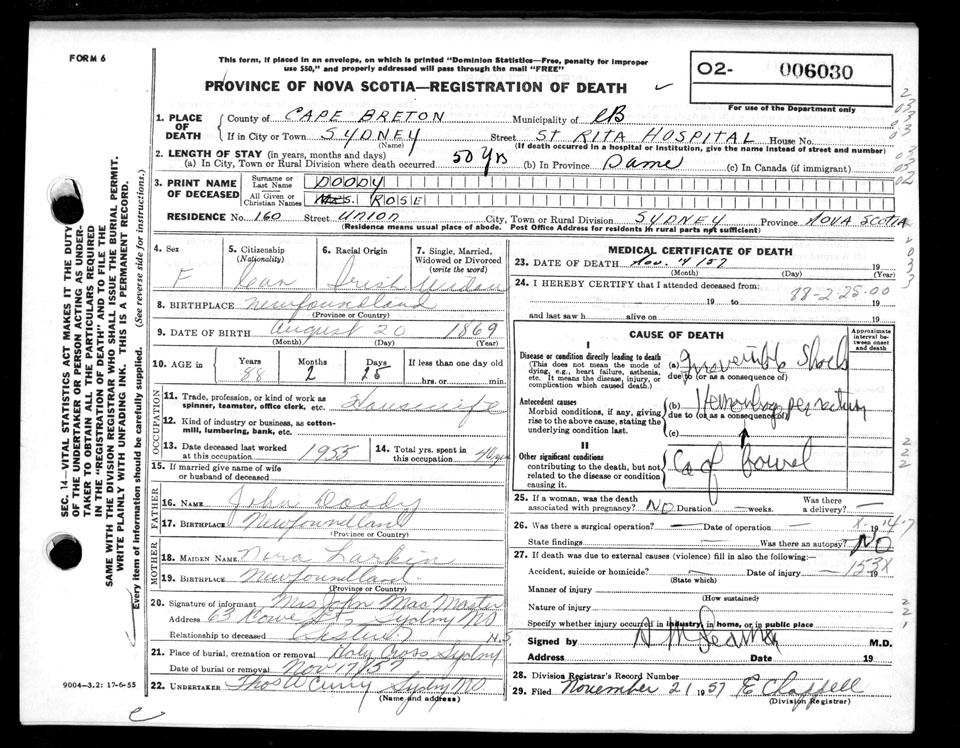 FORM 6
This form, if placed in an envelope, on which is printed "Dominion Statistics—Free, penalty for improper
use $50," and properly addressed will pass through the mail "FREE"
PROVINCE OF NOVA SCOTIA—REGISTRATION OF DEATH
O2- 006030
For use of the Department only
1. PLACE OF DEATH
County of CAPE BRETON Municipality of CB
If in City or Town SYDNEY Street ST RITA HOSPITAL House No.
(Name) (If death occurred in a hospital or institution, give the name instead of street and number)
2. LENGTH OF STAY (in years, months and days)
(a) In City, Town or Rural Division where death occurred 50 Yrs (b) In Province Same (c) In Canada (if immigrant)
3. PRINT NAME OF DECEASED
Surname or Last Name DOODY
All Given or Christian Names MRS. ROSE
RESIDENCE No. 160 Street UNION City, Town or Rural Division SYDNEY Province NOVA SCOTIA
(Residence means usual place of abode. Post Office Address for residents in rural parts not sufficient)
SEC. 14—VITAL STATISTICS ACT MAKES IT THE DUTY
OF THE UNDERTAKER OR PERSON ACTING AS UNDER-
TAKER TO OBTAIN ALL THE PARTICULARS REQUIRED
IN THE "REGISTRATION OF DEATH" AND TO FILE THE
SAME WITH THE DIVISION REGISTRAR WHO SHALL ISSUE THE BURIAL PERMIT.
WRITE PLAINLY WITH UNFADING INK. THIS IS A PERMANENT RECORD.
Every item of information should be carefully supplied. (See reverse side for instructions.)
4. Sex F
5. Citizenship (Nationality) Can
6. Racial Origin Irish
7. Single, Married, Widowed or Divorced (write the word) Widow
8. BIRTHPLACE Newfoundland
(Province or Country)
9. DATE OF BIRTH August 20 1869
(Month) (Day) (Year)
10. AGE in Years 88 Months 2 Days 15 If less than one day old
hrs. or min.
OCCUPATION
11. Trade, profession, or kind of work as
spinner, teamster, office clerk, etc. Housewife
12. Kind of industry or business, as cotton-
mill, lumbering, bank, etc.
13. Date deceased last worked at this occupation 1955
14. Total yrs. spent in this occupation
15. If married give name of wife
or husband of deceased
FATHER
16. NAME John Doody
17. BIRTHPLACE Newfoundland
(Province or Country)
MOTHER
18. MAIDEN NAME Nora Larkin
19. BIRTHPLACE Newfoundland
(Province or Country)
20. Signature of informant Mrs John Mac Master
Address 63 Howe St Sydney NS
Relationship to deceased N.S
21. Place of burial, cremation or removal Holy Cross Sydney
Date of burial or removal Nov 17/57
22. UNDERTAKER Thos W Curry Sydney NS
(Name and address)
9004—3.2: 17-6-55
MEDICAL CERTIFICATE OF DEATH
23. DATE OF DEATH Nov. 4 157 19
(Month) (Day) (Year)
24. I HEREBY CERTIFY that I attended deceased from:
88-2-25-00
19 to 19
and last saw h alive on 19
CAUSE OF DEATH
Approximate interval between onset and death
I
Disease or condition directly leading to death
(This does not mean the mode of
dying, e.g., heart failure, asthenia,
etc. It means the disease, injury, or
complication which caused death.)
(a) Irreversible Shock
due to (or as a consequence of)
Antecedent causes
Morbid conditions, if any, giving
rise to the above cause, stating the
underlying condition last.
(b) Hemorrhage per rectum
due to (or as a consequence of)
(c)
II
Other significant conditions
contributing to the death, but not
related to the disease or condition
causing it.
Ca of bowel
25. If a woman, was the death associated with pregnancy? NO Duration — weeks. Was there a delivery? —
26. Was there a surgical operation? — Date of operation — 19
State findings Was there an autopsy? NO
27. If death was due to external causes (violence) fill in also the following:
Accident, suicide or homicide? — Date of injury — 19
153X
(State which)
Manner of injury
(How sustained)
Nature of injury
Specify whether injury occurred in industry, in home, or in public place
Signed by M.D.
Address Date 19
28. Division Registrar's Record Number
29. Filed November 21 1957 E Chappell
(Division Registrar)